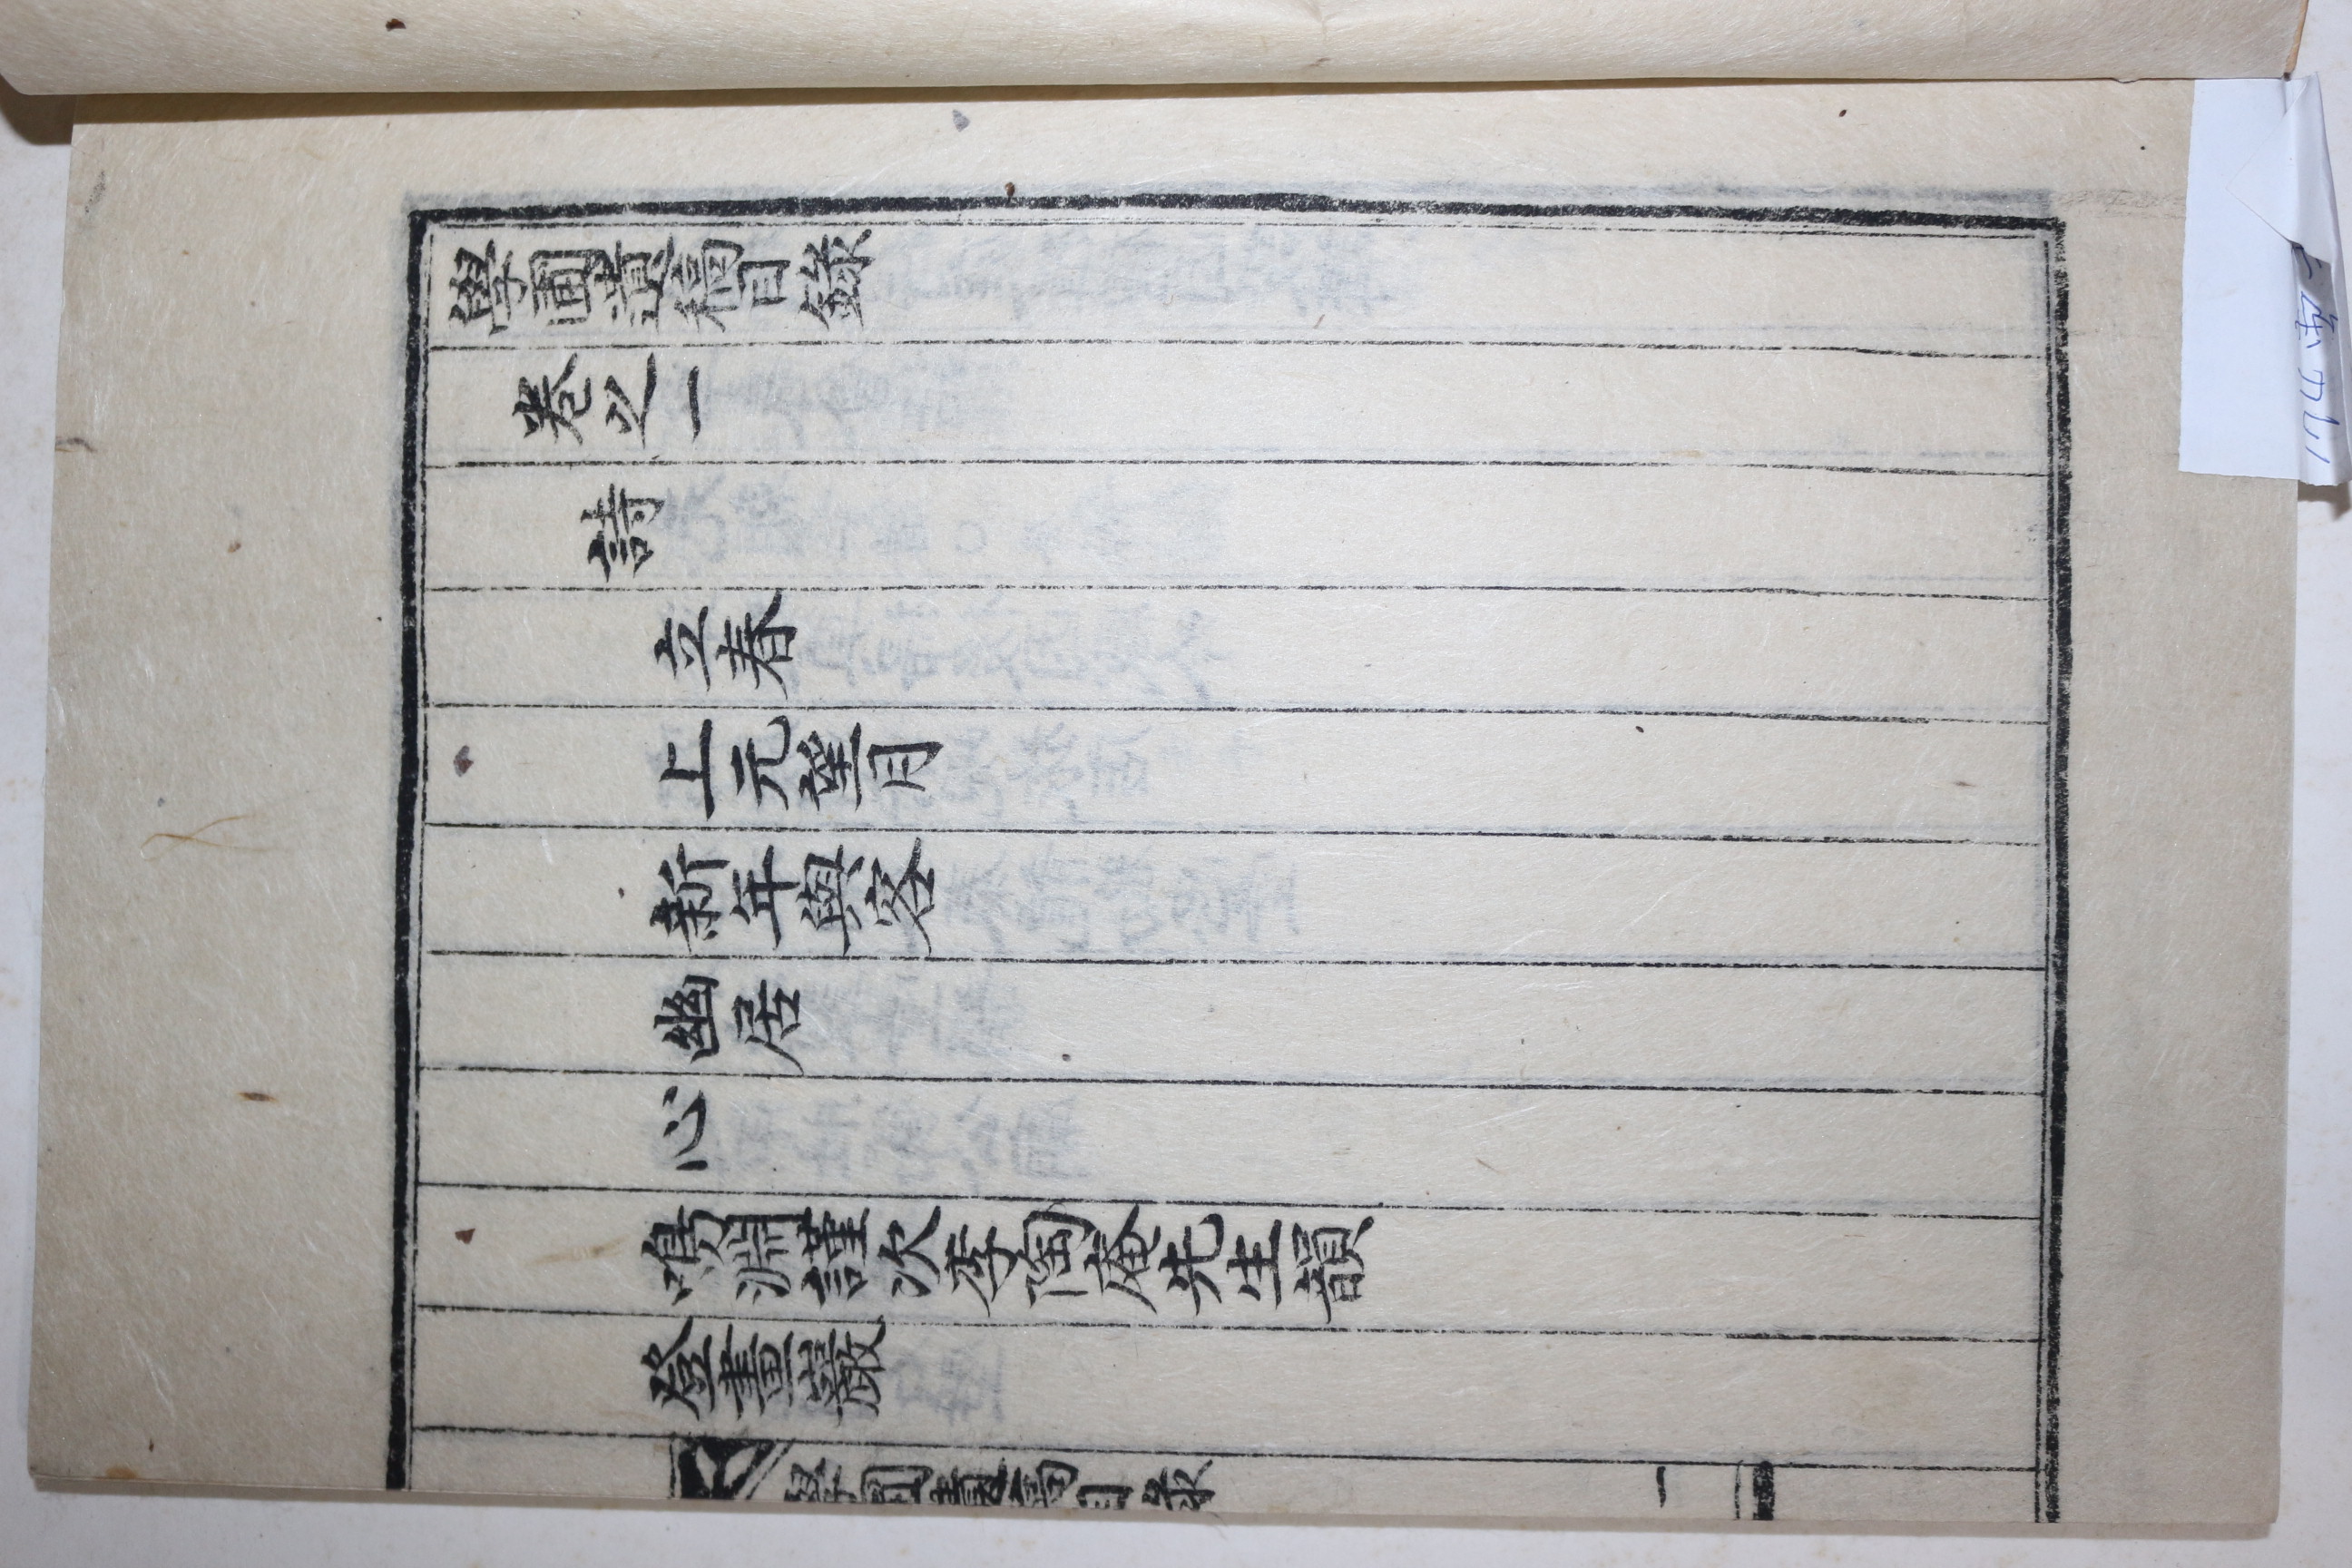 學圃遺稿目錄
卷之一
詩
立春
上元望月
新年與客
幽居
心
馬湖謹次李陶庵先生韻
登畫巖
學圃遺稿目錄 一